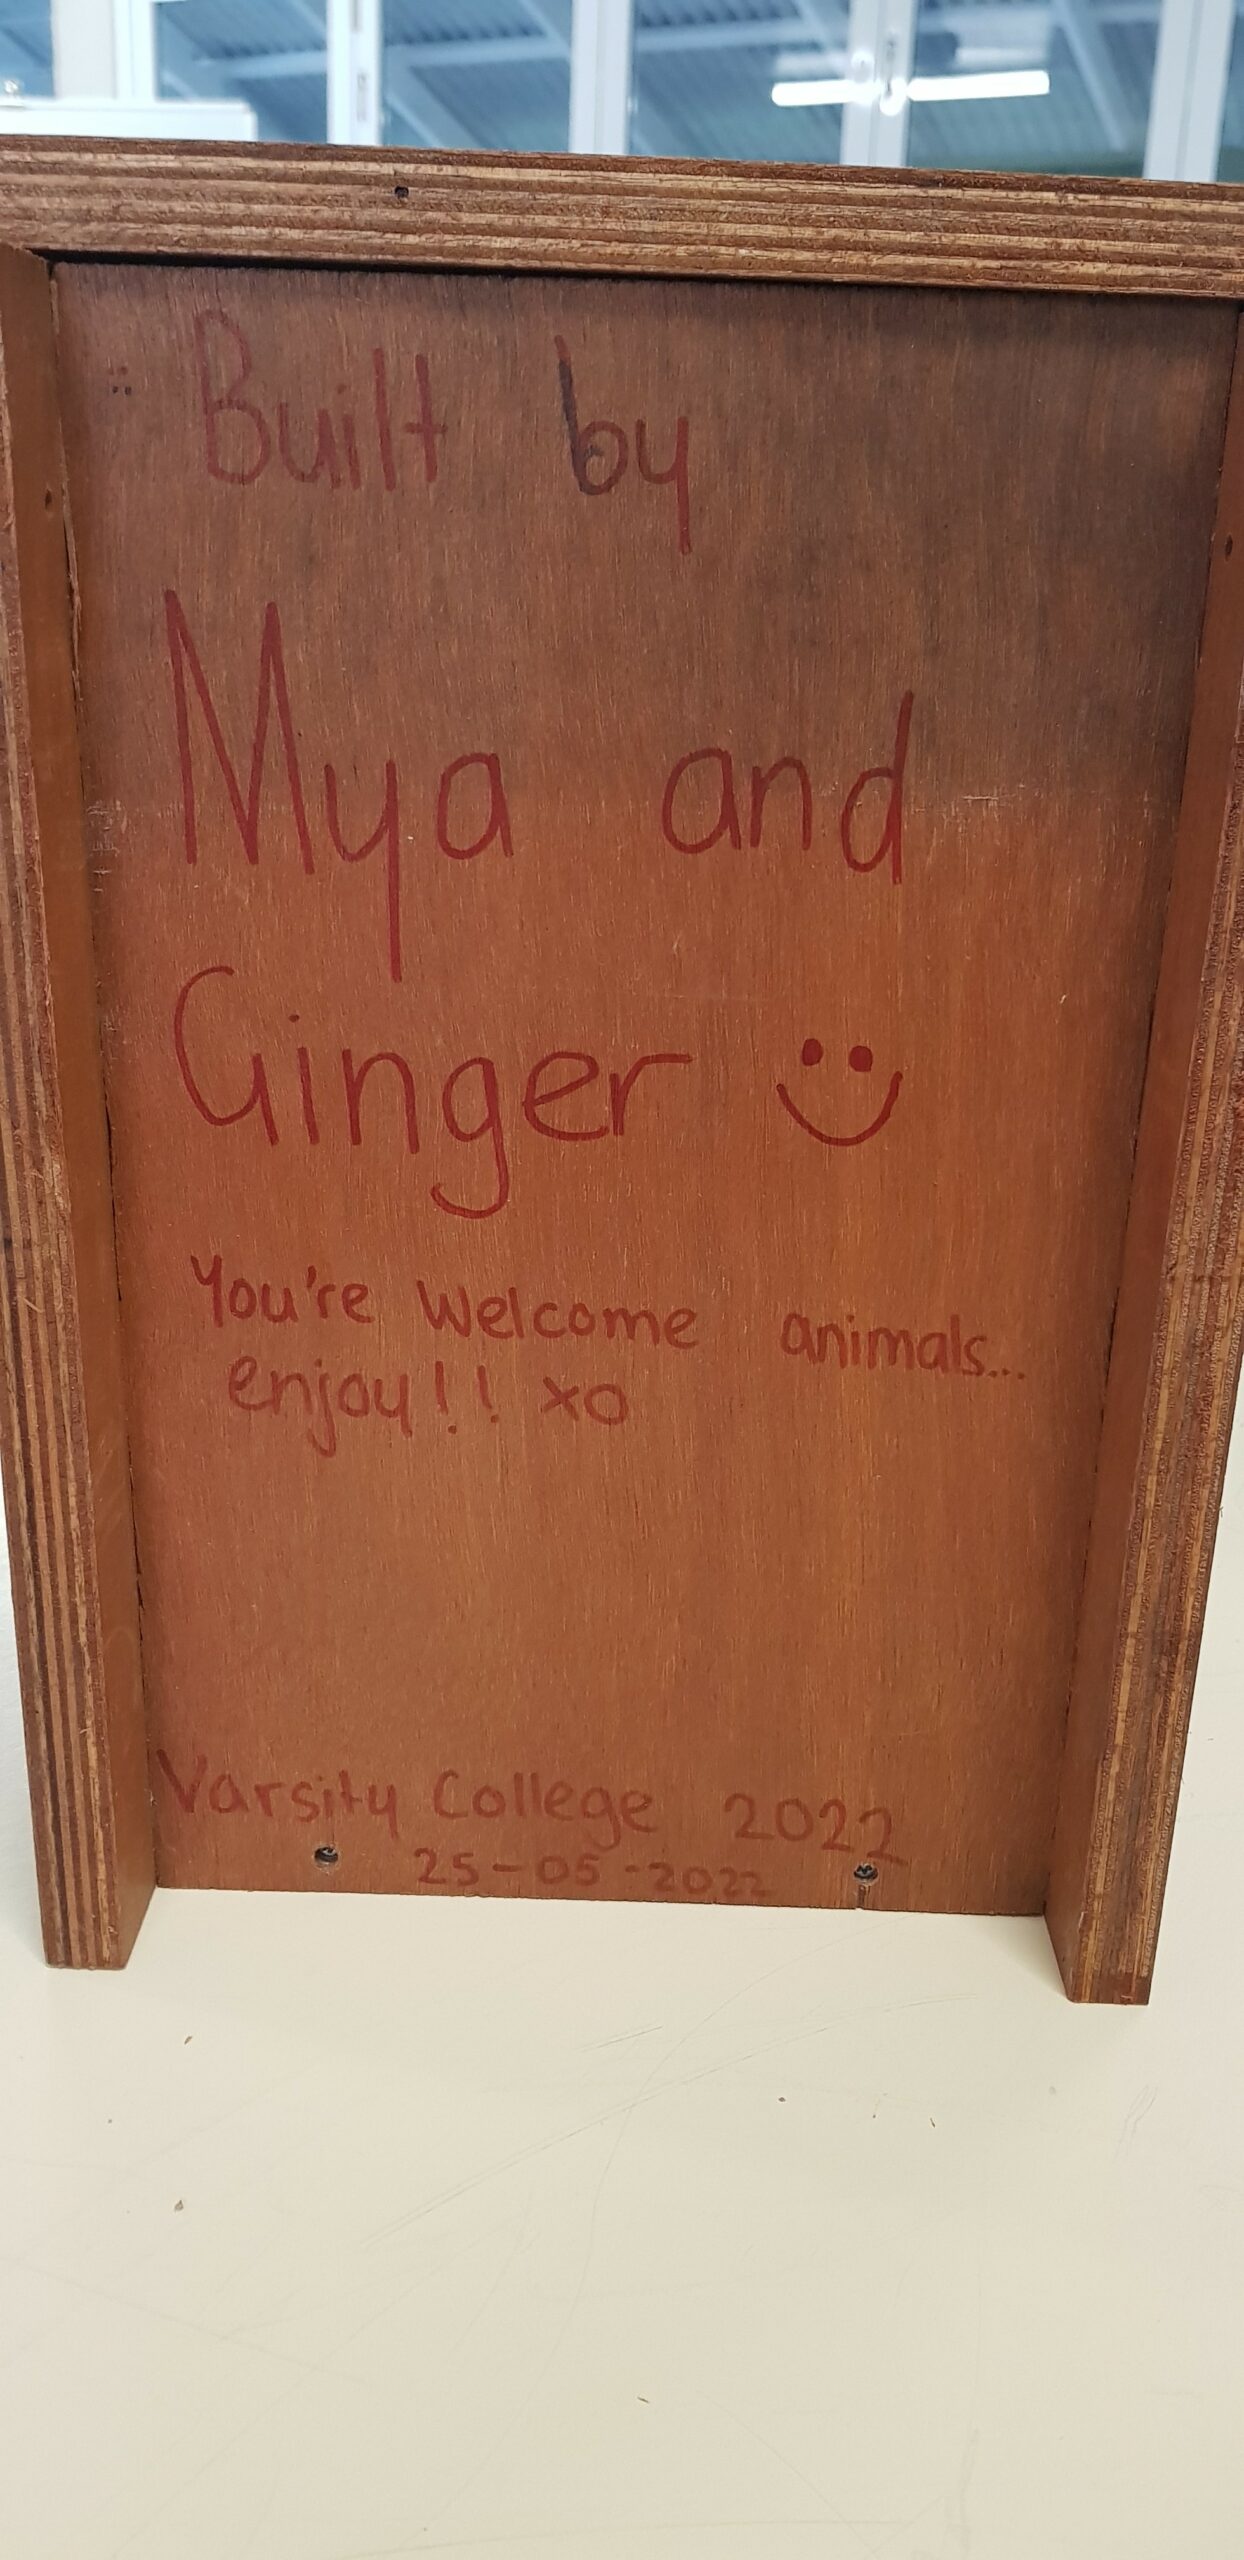 Built by
Mya and
Ginger
You're welcome animals...
enjoy!! xo
Varsity College 2022
25-05-2022